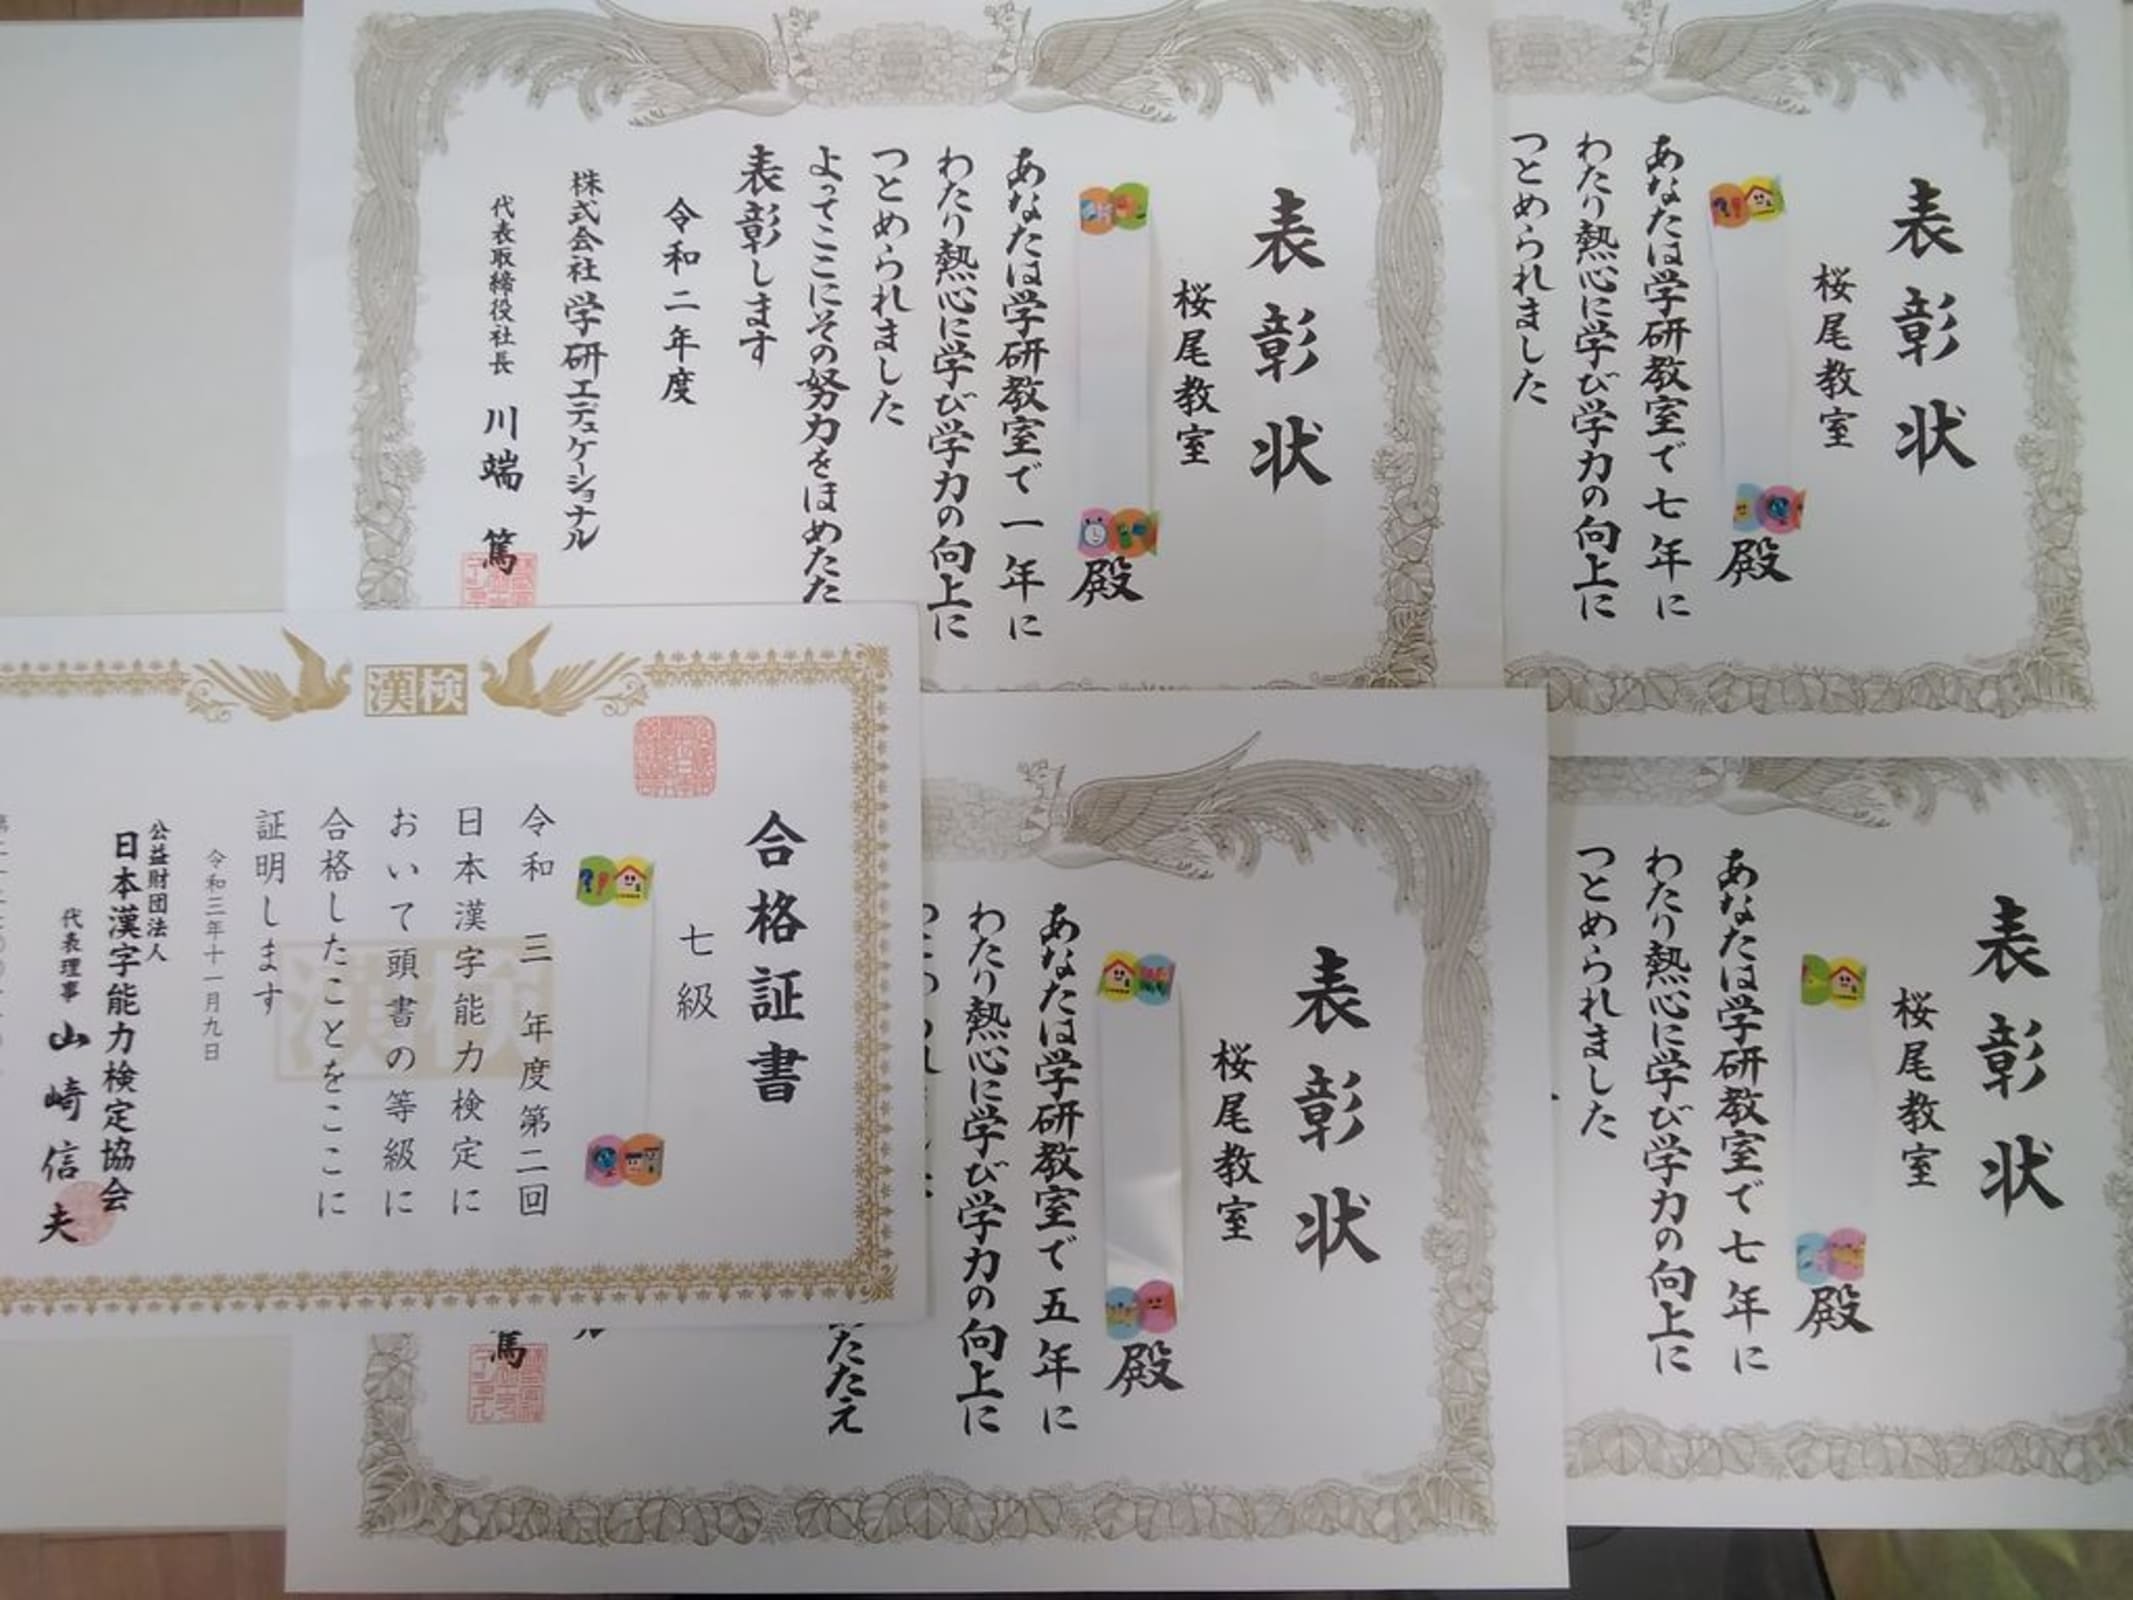 表彰状
桜尾教室
殿
あなたは学研教室で一年に
わたり熱心に学び学力の向上に
つとめられました
よってここにその努力をほめたた
表彰します
令和二年度
株式会社学研エデュケーショナル
代表取締役社長 川端 篤
表彰状
桜尾教室
殿
あなたは学研教室で七年に
わたり熱心に学び学力の向上に
つとめられました
漢検
合格証書
七級
令和三年度第二回
日本漢字能力検定に
おいて頭書の等級に
合格したことをここに
証明します
令和三年十一月九日
公益財団法人
日本漢字能力検定協会
代表理事 山崎信夫
漢検
表彰状
桜尾教室
殿
あなたは学研教室で五年に
わたり熱心に学び学力の向上に
たたえ
篤
表彰状
桜尾教室
殿
あなたは学研教室で七年に
わたり熱心に学び学力の向上に
つとめられました